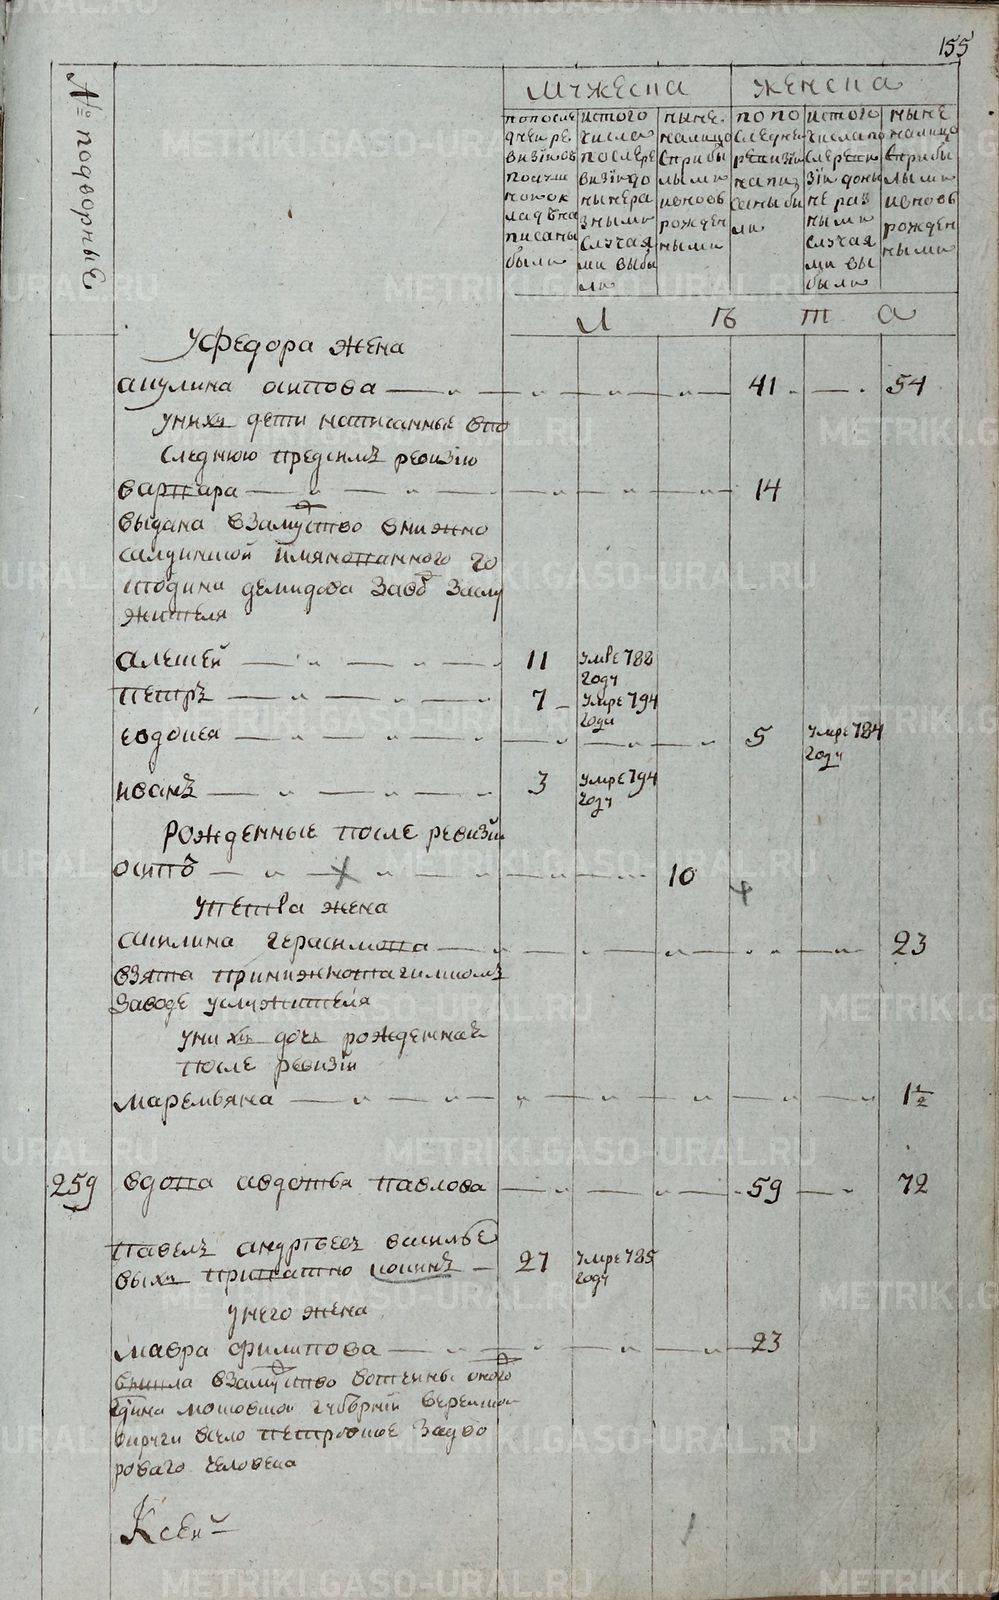 155
№ подворные
мужеска
женска
по после
дней ре
визiи въ
подуш
ном ок
ладъ на
писаны
были
ис того
числа
после ре
визiи до
ныне ра
зными
случая
ми выбы
ли
ныне
налицо
с прибы
лыми
и вновь
рожден
ными
по по
следней
ревизiи
напи
саны бы
ли
ис того
числа по
сле реви
зiи до ны
не раз
ными
случая
ми вы
были
ныне
налицо
с прибы
лыми
и вновь
рожден
ными
л ѣ т а
У Федора жена
акулина осипова 41 54
у них дети написанные в по
следнюю пред сим ревизiю
варвара 14
выдана в замужство в нижно
салдинской имянованного го
сподина демидова завод служ
жителя
алексей 11 умре 788
году
петръ 7 умре 794
году
евдокея 5 умре 784
году
иванъ 3 умре 794
году
Рожденные после ревизiи
осипъ 10
у петра жена
акилина герасимова 23
взята при нижнотагилском
заводе у служителя
у них дочь рожденная
после ревизiи
маремьяна 1½
259 вдова авдотья павлова 59 72
павелъ андреевъ василье
вых приписано 27 умре 785
году
у него жена
мавра филипова 23
вышла в замужство вотчины оного
гдина московской губернiи
округи село петровское за дво
роваго человека
Ксен
METRIKI.GASO-URAL.RU